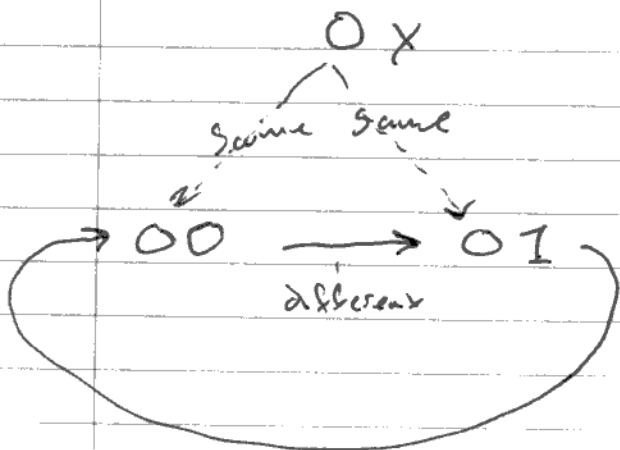 0 x
same same
00 01
different